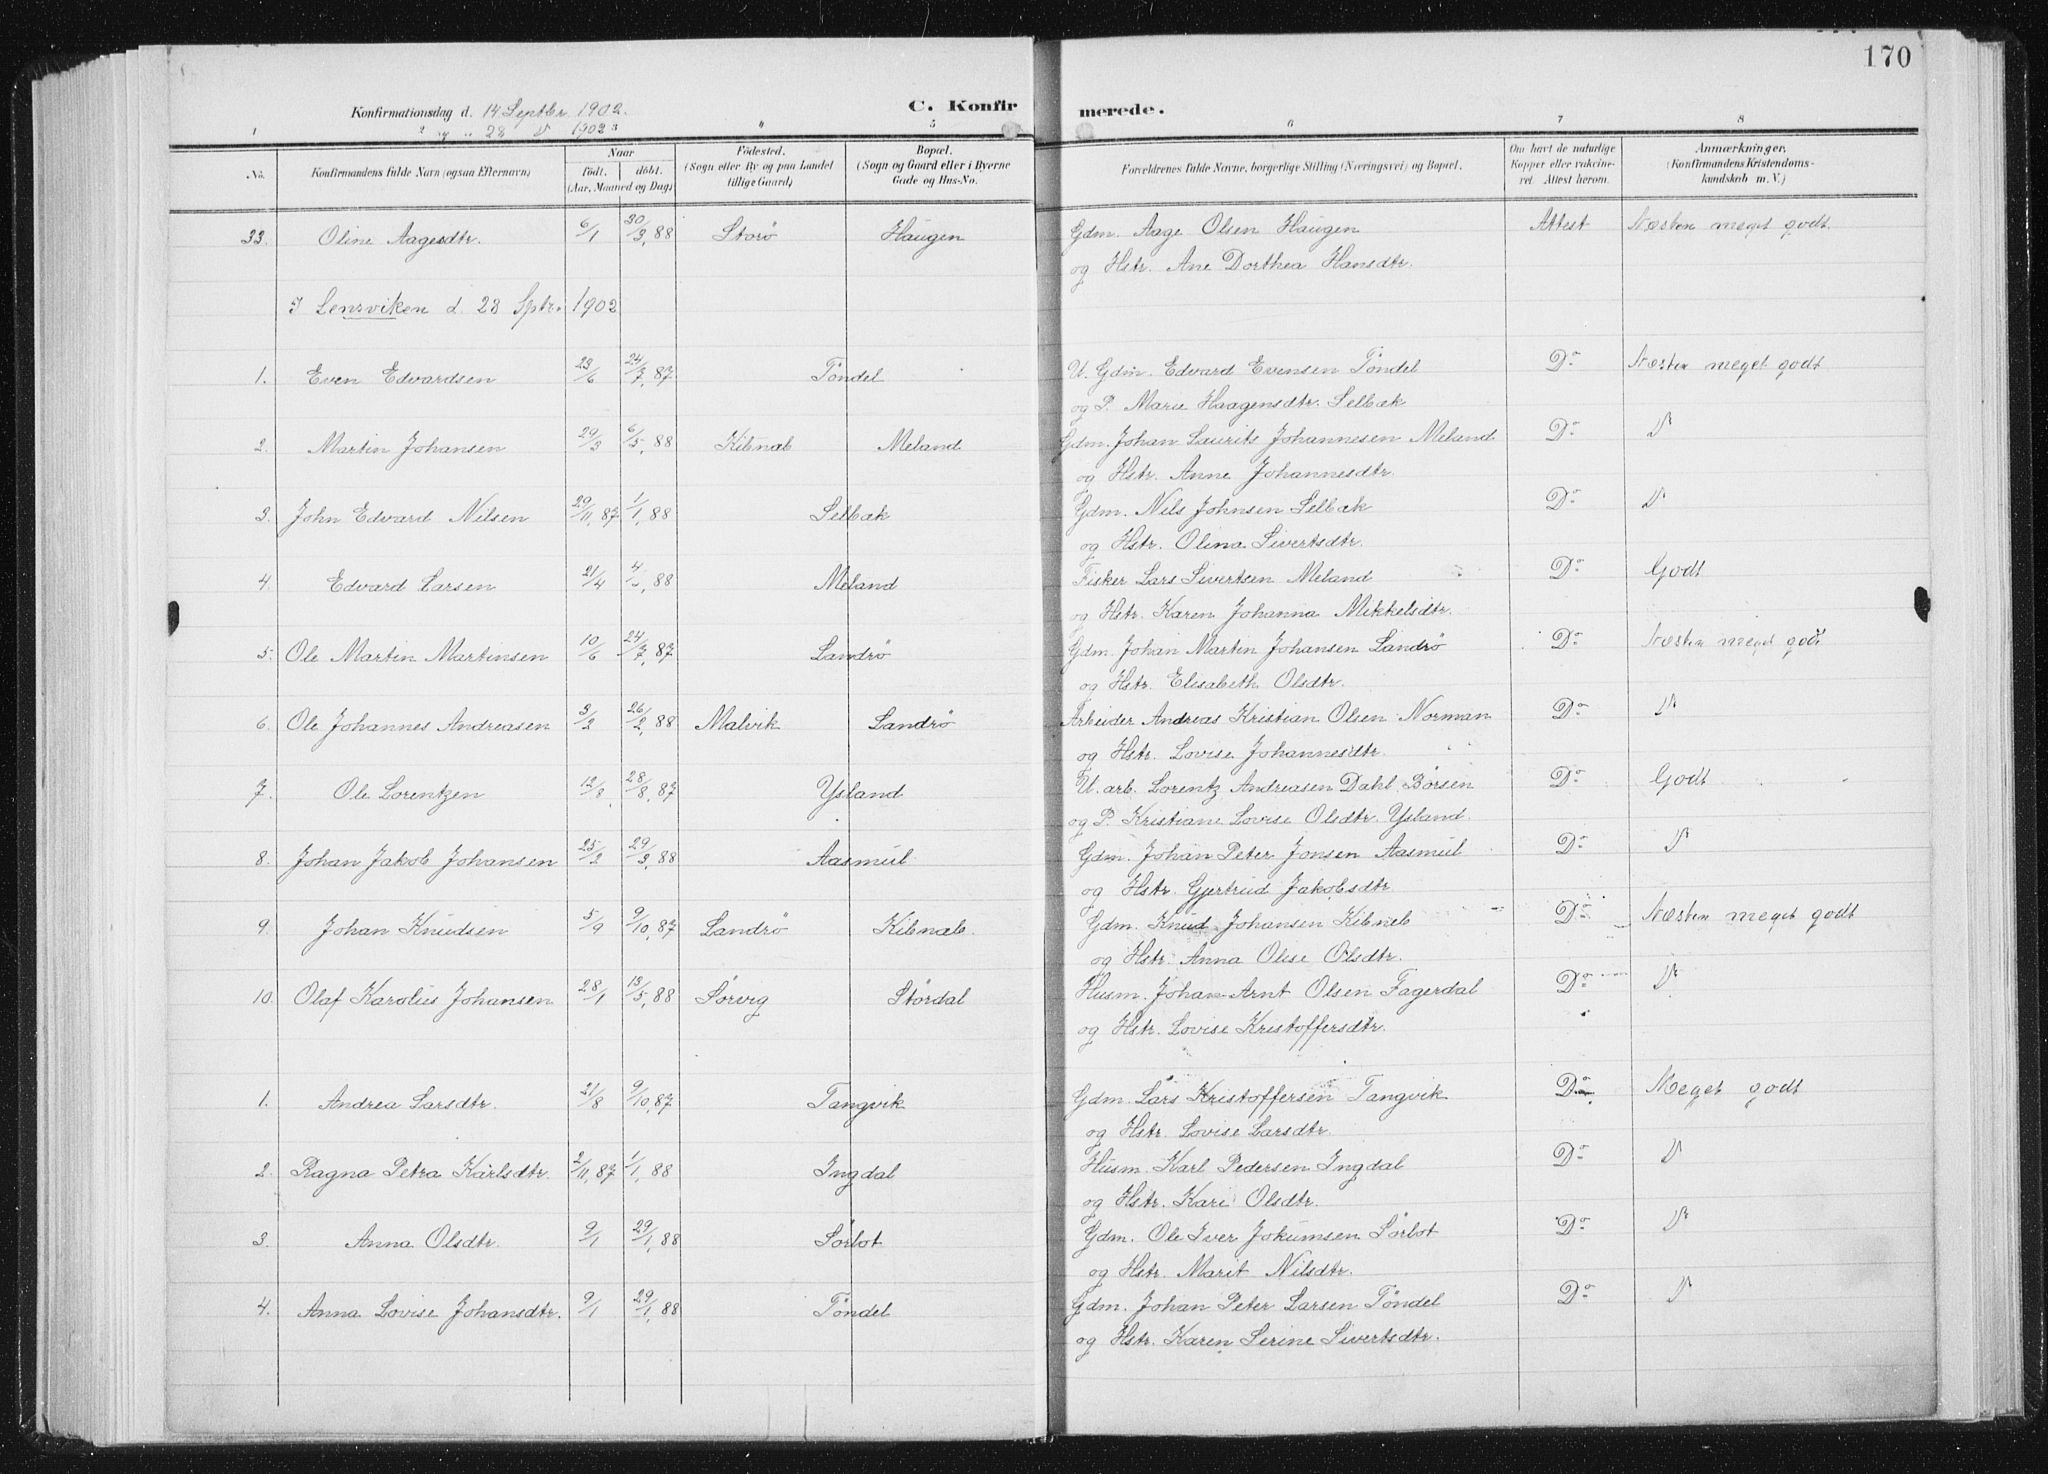 170
C. Konfir merede.
Konfirmationsdag d. 14 Septbr. 1902.
" og " 28 D 1902
1 2 3 4 5 6 7 8
No. Konfirmandens fulde Navn (ogsaa Efternavn) Naar födt. döbt. (Aar, Maaned og Dag) Födested. (Sogn eller By og paa Landet tillige Gaard) Bopæl. (Sogn og Gaard eller i Byerne Gade og Hus-No. Forældrenes fulde Navne, borgerlige Stilling (Næringsvei) og Bopæl. Om havt de naturlige Kopper eller vakcineret. Attest herom. Anmærkninger. (Konfirmandens Kristendomskundskab m. V.)
33. Oline Aagesdtr. 6/1 30/3, 88 Storø Haugen Gdm. Aage Olsen Haugen Attest Næsten meget godt
og Hstr. Ane Dorthea Hansdtr.
I Lensviken d. 28 Sptr. 1902
1. Even Edvardsen 23/6 24/7, 87 Töndel U. Gdm. Edvard Evensen Töndel Do Næsten meget godt
og P. Marie Haagensdtr. Selbæk
2. Martin Johansen 29/3 6/5, 88 Kibnæb Meland Gdm. Johan Laurits Johannesen Meland Do D
og Hstr. Anne Johannesdtr.
3. John Edvard Nilsen 29/11, 87 1/1, 88 Selbæk Gdm. Nils Johnsen Selbæk Do D
og Hstr. Olina Sivertsdtr.
4. Edvard Larsen 21/4 88 Meland Fisker Lars Sivertsen Meland Do Godt
og Hstr. Karen Johanna Mikkelsdtr.
5. Ole Martin Martinsen 10/6 24/7, 87 Landrö Gdm. Johan Martin Johansen Landrö Do Næsten meget godt
og Hstr. Elisabeth Olsdtr.
6. Ole Johannes Andreasen 3/2 26/2, 88 Malvik Landrö Arbeider Andreas Kristian Olsen Norman Do D
og Hstr. Lovise Johannesdtr.
7. Ole Lorentzen 12/8 28/8, 87 Ysland U. arb. Lorentz Andreasen Dahl, Börsen Do Godt
og P. Kristiane Lovise Olsdtr. Ysland.
8. Johan Jakob Johansen 25/2 29/3, 88 Aasmul Gdm. Johan Peter Jonsen Aasmul Do D
og Hstr. Gjertrud Jakobsdtr.
9. Johan Knudsen 5/9 9/10, 87 Landrö Kibnæb. Gdm. Knud Johansen Kibneb Do Næsten meget godt
og Hstr. Anna Olise Olsdtr.
10. Olaf Karolius Johansen 28/1 13/5, 88 Sörvig Stördal Husm. Johan Arnt Olsen Fagerdal Do D
og Hstr. Lovise Kristoffersdtr.
1. Andrea Larsdtr. 21/8 9/10, 87 Tangvik Gdm. Lars Kristoffersen Tangvik Do Meget godt
og Hstr. Lovise Larsdtr.
2. Ragna Petra Karlsdtr. 2/11, 87 1/1, 88 Ingdal Husm. Karl Pedersen Ingdal Do D
og Hstr. Kari Olsdtr.
3. Anna Olsdtr. 9/1 29/1, 88 Sörbot Gdm. Ole Iver Jokumsen Sörbot Do D
og Hstr. Marit Nilsdtr.
4. Anna Lovise Johansdtr. 9/1 29/1, 88 Töndel Gdm. Johan Peter Larsen Töndel Do D
og Hstr. Karen Serine Sivertsdtr.